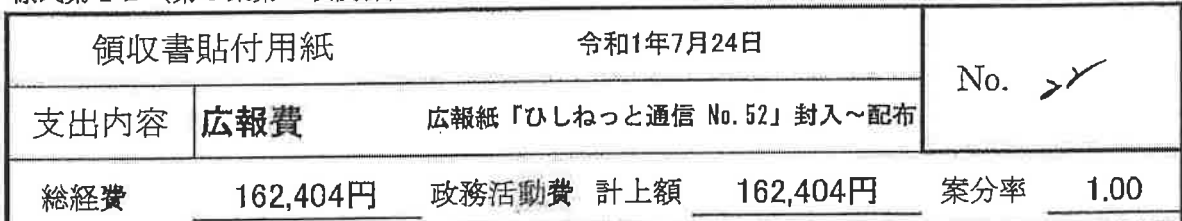 領収書貼付用紙 令和1年7月24日
No.
支出内容 広報費 広報紙「ひしねっと通信 No.52」封入～配布
総経費 162,404円 政務活動費 計上額 162,404円 案分率 1.00